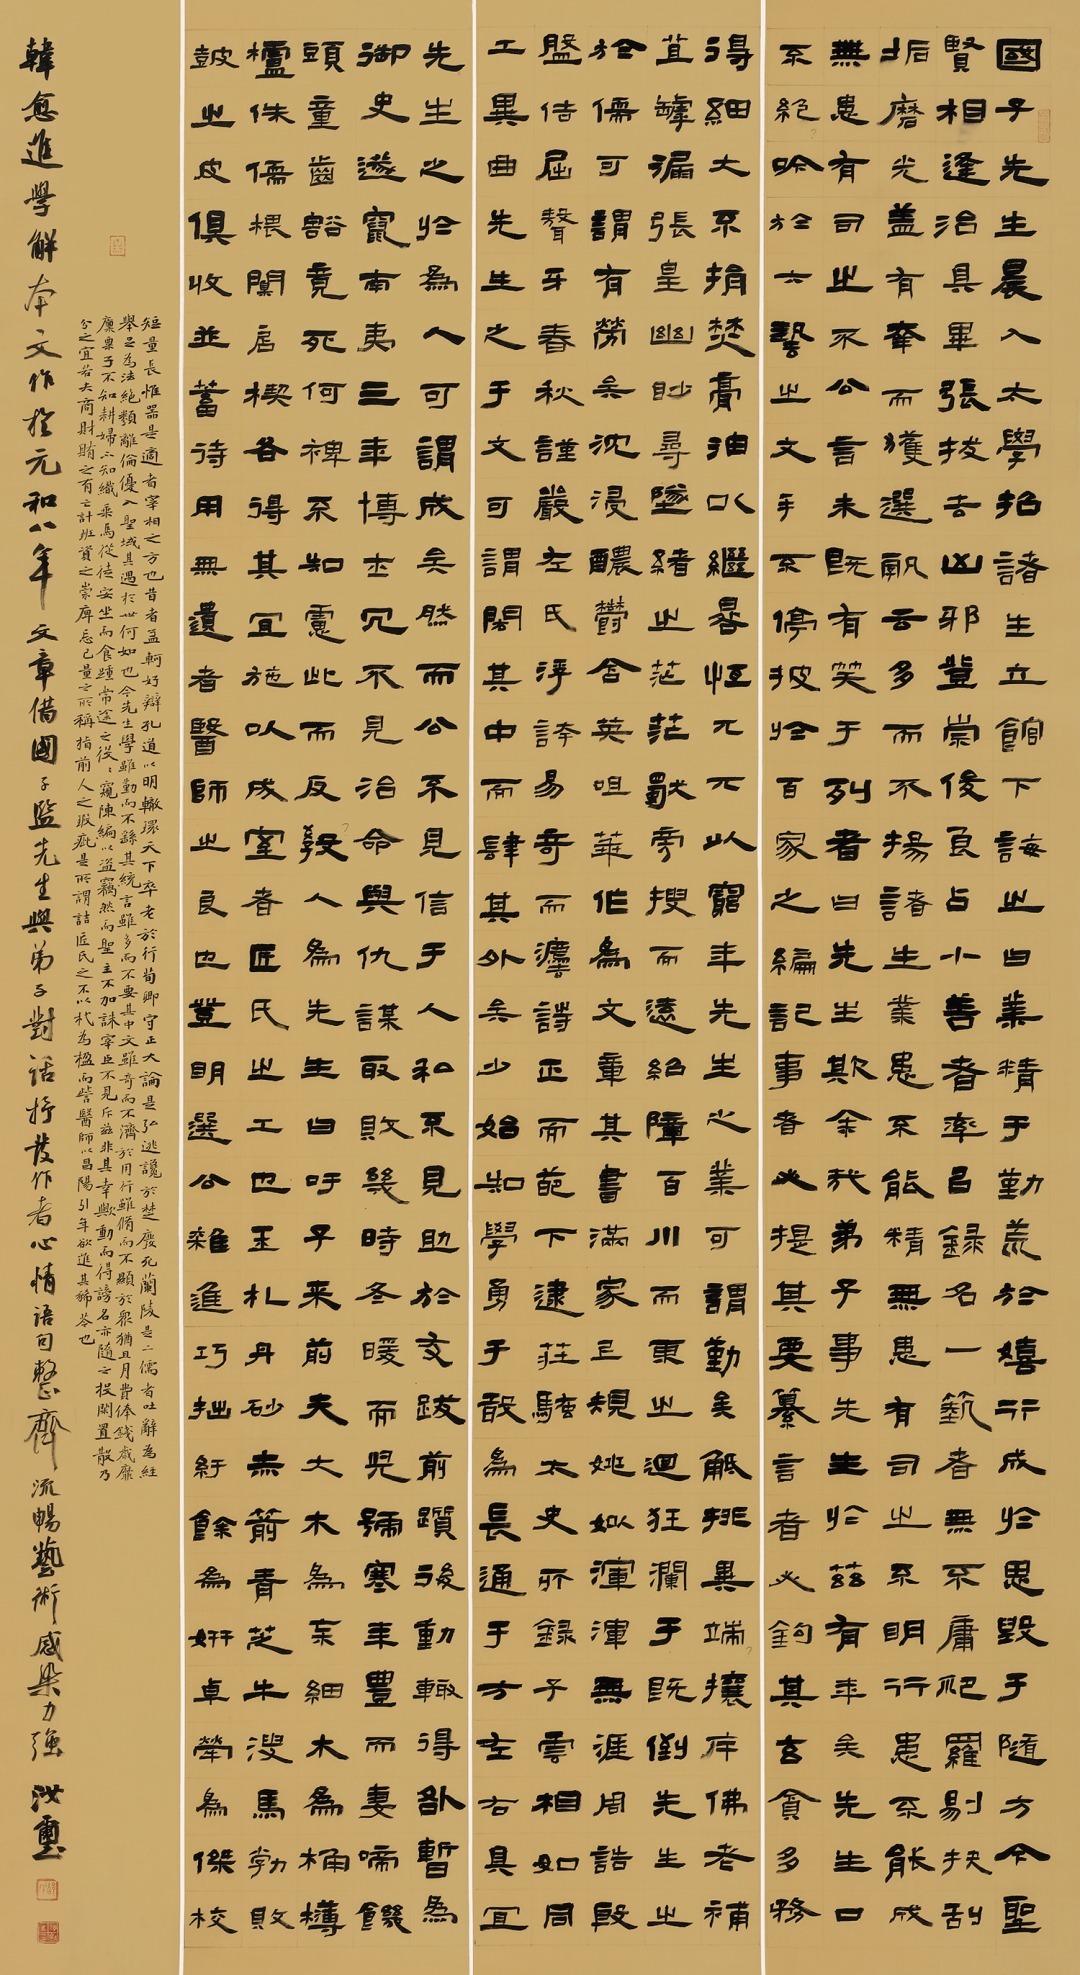 國子先生晨入太學招諸生立館下誨之曰業精于勤荒於嬉行成於思毀于隨方今聖
賢相逢治具畢張拔去凶邪登崇俊良占小善者率㠯錄名一藝者無不庸爬羅剔抉刮
垢磨光盖有幸而獲選孰云多而不揚諸生業患不能精無患有司之不明行患不能成
無患有司之不公言未既有笑于列者曰先生欺余哉弟子事先生於茲有年矣先生口
不絕吟於六藝之文手不停披於百家之編記事者必提其要纂言者必鉤其玄貪多務
得細大不捐焚膏油以繼晷恒兀兀以窮年先生之業可謂勤矣觝排異端攘斥佛老補
苴罅漏張皇幽眇尋墜緒之茫茫獨旁搜而遠紹障百川而東之迴狂瀾于既倒先生之
於儒可謂有勞矣沈浸醲鬱含英咀華作為文章其書滿家上規姚姒渾渾無涯周誥殷
盤佶屈聱牙春秋謹嚴左氏浮誇易奇而灋詩正而葩下逮莊騷太史所錄子雲相如同
工異曲先生之于文可謂閎其中而肆其外矣少始知學勇于敢為長通于方左右具宜
先生之於為人可謂成矣然而公不見信于人私不見助於友跋前躓後動輒得咎暫為
御史遂竄南夷三年博士冗不見治命與仇謀取敗幾時冬暖而兒號寒年豐而妻啼饑
頭童齒豁竟死何裨不知慮此而反教人為先生曰吁子来前夫大木為杗細木為桷欂
櫨侏儒椳闑扂楔各得其宜施以成室者匠氏之工也玉札丹砂赤箭青芝牛溲馬勃敗
鼓之皮俱收並蓄待用無遺者醫師之良也登明選公雜進巧拙紆餘為妍卓犖為傑校
短量長惟器是適者宰相之方也昔者孟軻好辯孔道以明轍環天下卒老於行荀卿守正大論是弘逃讒於楚廢死蘭陵是二儒者吐辭為經
舉足為法絕類離倫優入聖域其遇於世何如也今先生學雖勤而不繇其統言雖多而不要其中文雖奇而不濟於用行雖脩而不顯於眾猶且月費俸錢歲靡
廩粟子不知耕婦不知織乘馬從徒安坐而食踵常途之役々窺陳編以盜竊然而聖主不加誅宰臣不見斥茲非其幸歟動而得謗名亦隨之投閑置散乃
分之宜若夫商財賄之有亡計班資之崇庳忘己量之所稱指前人之瑕疵是所謂詰匠氏之不以杙為楹而訾醫師以昌陽引年欲進其豨苓也
韓愈進學解本文作於元和八年文章借國子監先生與弟子對話抒發作者心情語句整齊流暢藝術感染力強 汝璽